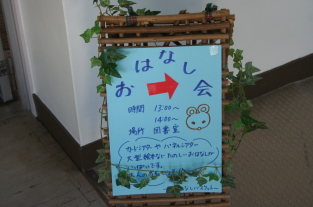 おはなし会
時間 13:00〜
14:00〜
場所 図書室
カードシアターやパネルシアター
大型絵本など たのしーおはなしが
いっぱいです。